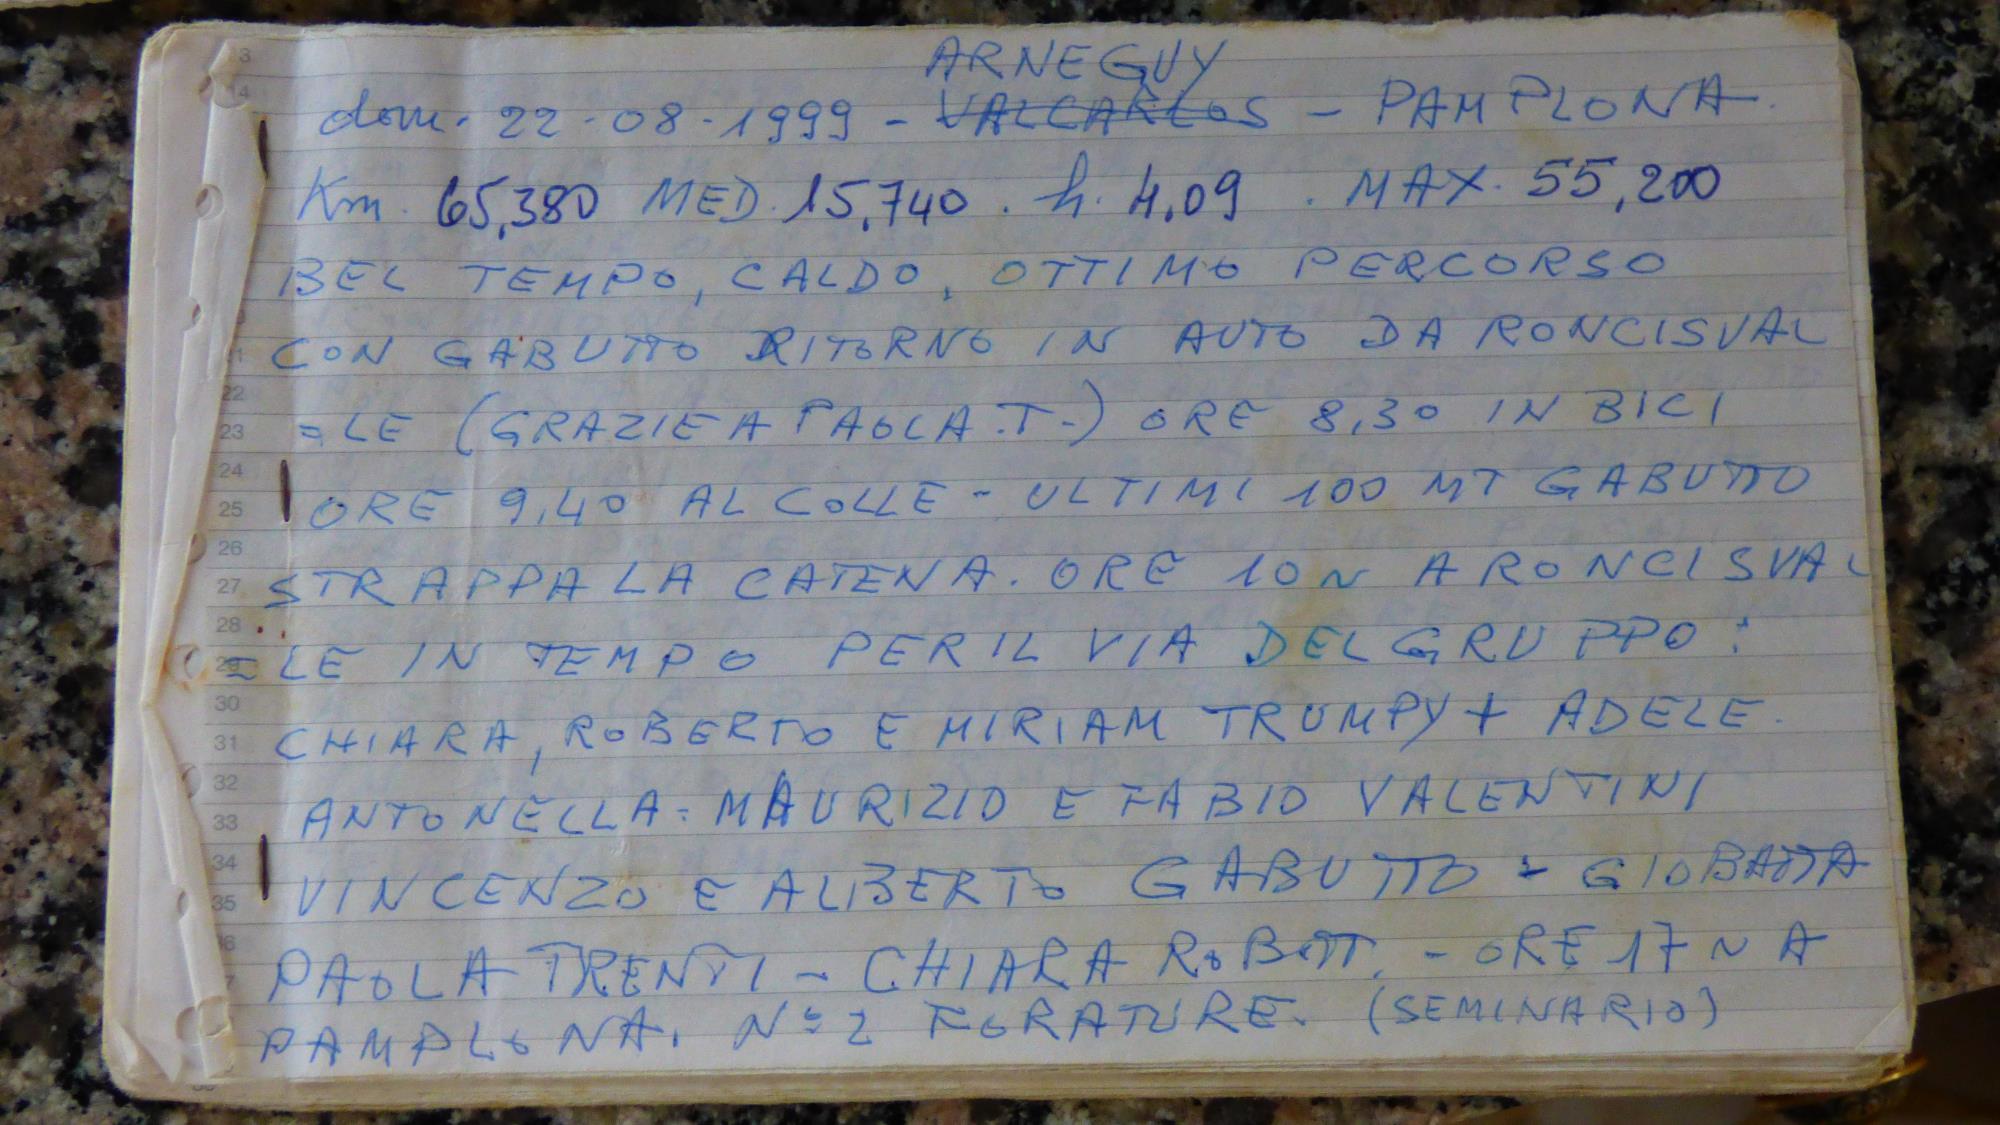 ARNEGUY
dom. 22-08-1999 - VALCARLOS - PAMPLONA.
Km. 65,380 MED. 15,740. h. 4,09. MAX. 55,200
BEL TEMPO, CALDO, OTTIMO PERCORSO
CON GABUTTO RITORNO IN AUTO DA RONCISVAL
=LE (GRAZIE A PAOLA.T.) ORE 8,30 IN BICI
ORE 9,40 AL COLLE - ULTIMI 100 MT GABUTTO
STRAPPA LA CATENA. ORE 10 ~ A RONCISVAL
=LE IN TEMPO PER IL VIA DEL GRUPPO:
CHIARA, ROBERTO E MIRIAM TRUMPY + ADELE.
ANTONELLA = MAURIZIO E FABIO VALENTINI
VINCENZO E ALBERTO GABUTTO - GIOBATTA
PAOLA TRENTI - CHIARA ROBOTT. - ORE 17 ~ A
PAMPLONA. N° 2 FORATURE. (SEMINARIO)